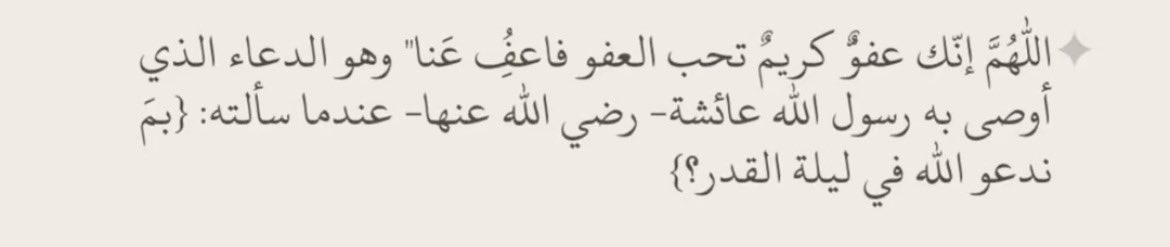 اللّهُمَّ إنّك عفوٌّ كريمٌ تحب العفو فاعفُِ عَنا" وهو الدعاء الذي
أوصى به رسول الله عائشة- رضي الله عنها- عندما سألته: {بمَ
ندعو الله في ليلة القدر؟}